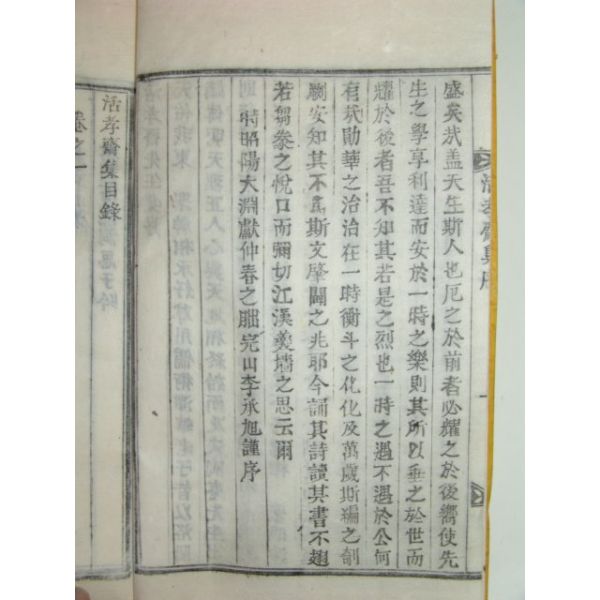 盛矣哉盖天生斯人也厄之於前者必耀之於後嚮使先
生之學享利達而安於一時之樂則其所以垂之於世而
耀於後者吾不知其若是之烈也一時之遇不遇於公何
有哉勛華之治洽在一時衡斗之化化及萬歲斯編之剞
劂安知其不爲斯文肇闢之兆耶今誦其詩讀其書不翅
若芻豢之悅口而彌切江漢羹墻之思云爾
時昭陽大淵獻仲春之朏完山李承旭謹序
活孝齋集目錄
卷之一